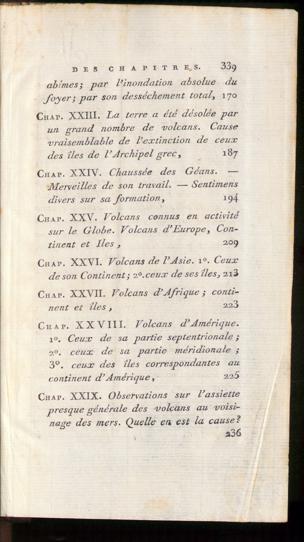 DES CHAPITRES. 339
abîmes; par l'inondation absolue du
foyer; par son desséchement total, 170
CHAP. XXIII. La terre a été désolée par
un grand nombre de volcans. Cause
vraisemblable de l'extinction de ceux
des îles de l'Archipel grec, 187
CHAP. XXIV. Chaussée des Géans. —
Merveilles de son travail. — Sentimens
divers sur sa formation, 194
CHAP. XXV. Volcans connus en activité
sur le Globe. Volcans d'Europe, Con-
tinent et Iles, 209
CHAP. XXVI. Volcans de l'Asie. 1º. Ceux
de son Continent; 2º. ceux de ses îles, 213
CHAP. XXVII. Volcans d'Afrique; conti-
nent et îles, 223
CHAP. XXVIII. Volcans d'Amérique.
1º. Ceux de sa partie septentrionale;
2º. ceux de sa partie méridionale;
3º. ceux des îles correspondantes au
continent d'Amérique, 225
CHAP. XXIX. Observations sur l'assiette
presque générale des volcans au voisi-
nage des mers. Quelle en est la cause?
236